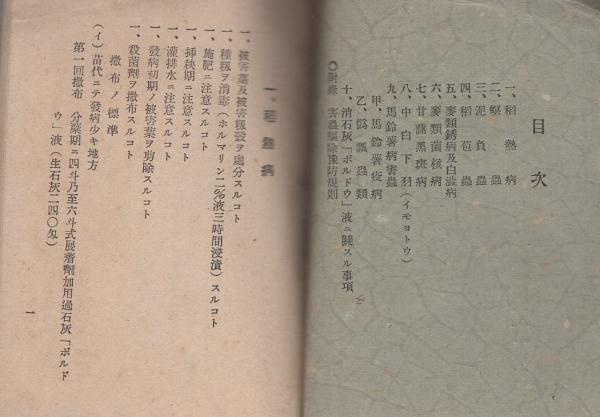 目次
一、稻熱病
二、螟蟲
三、泥負蟲
四、稻苞蟲
五、麥類銹病及白澁病
六、麥類菌核病
七、甘藷黑斑病
八、中白下羽（イモヨトウ）
九、馬鈴薯病害蟲
甲、馬鈴薯疫病
乙、僞瓢蟲類
十、消石灰「ボルドウ」液ニ關スル事項
〇附錄 害蟲驅除豫防規則
一、稻熱病
一、被害藁及被害籾殼ヲ處分スルコト
一、種籾ヲ消毒（ホルマリン二％液三時間浸漬）スルコト
一、施肥ニ注意スルコト
一、挿秧期ニ注意スルコト
一、灌排水ニ注意スルコト
一、發病初期ノ被害葉ヲ剪除スルコト
一、殺菌劑ヲ撒布スルコト
撒布ノ標準
（イ）苗代ニテ發病少キ地方
第一回撒布 分蘗期ニ四斗乃至六斗式展着劑加用過石灰「ボルド
ウ」液（生石灰二四〇匁）
一